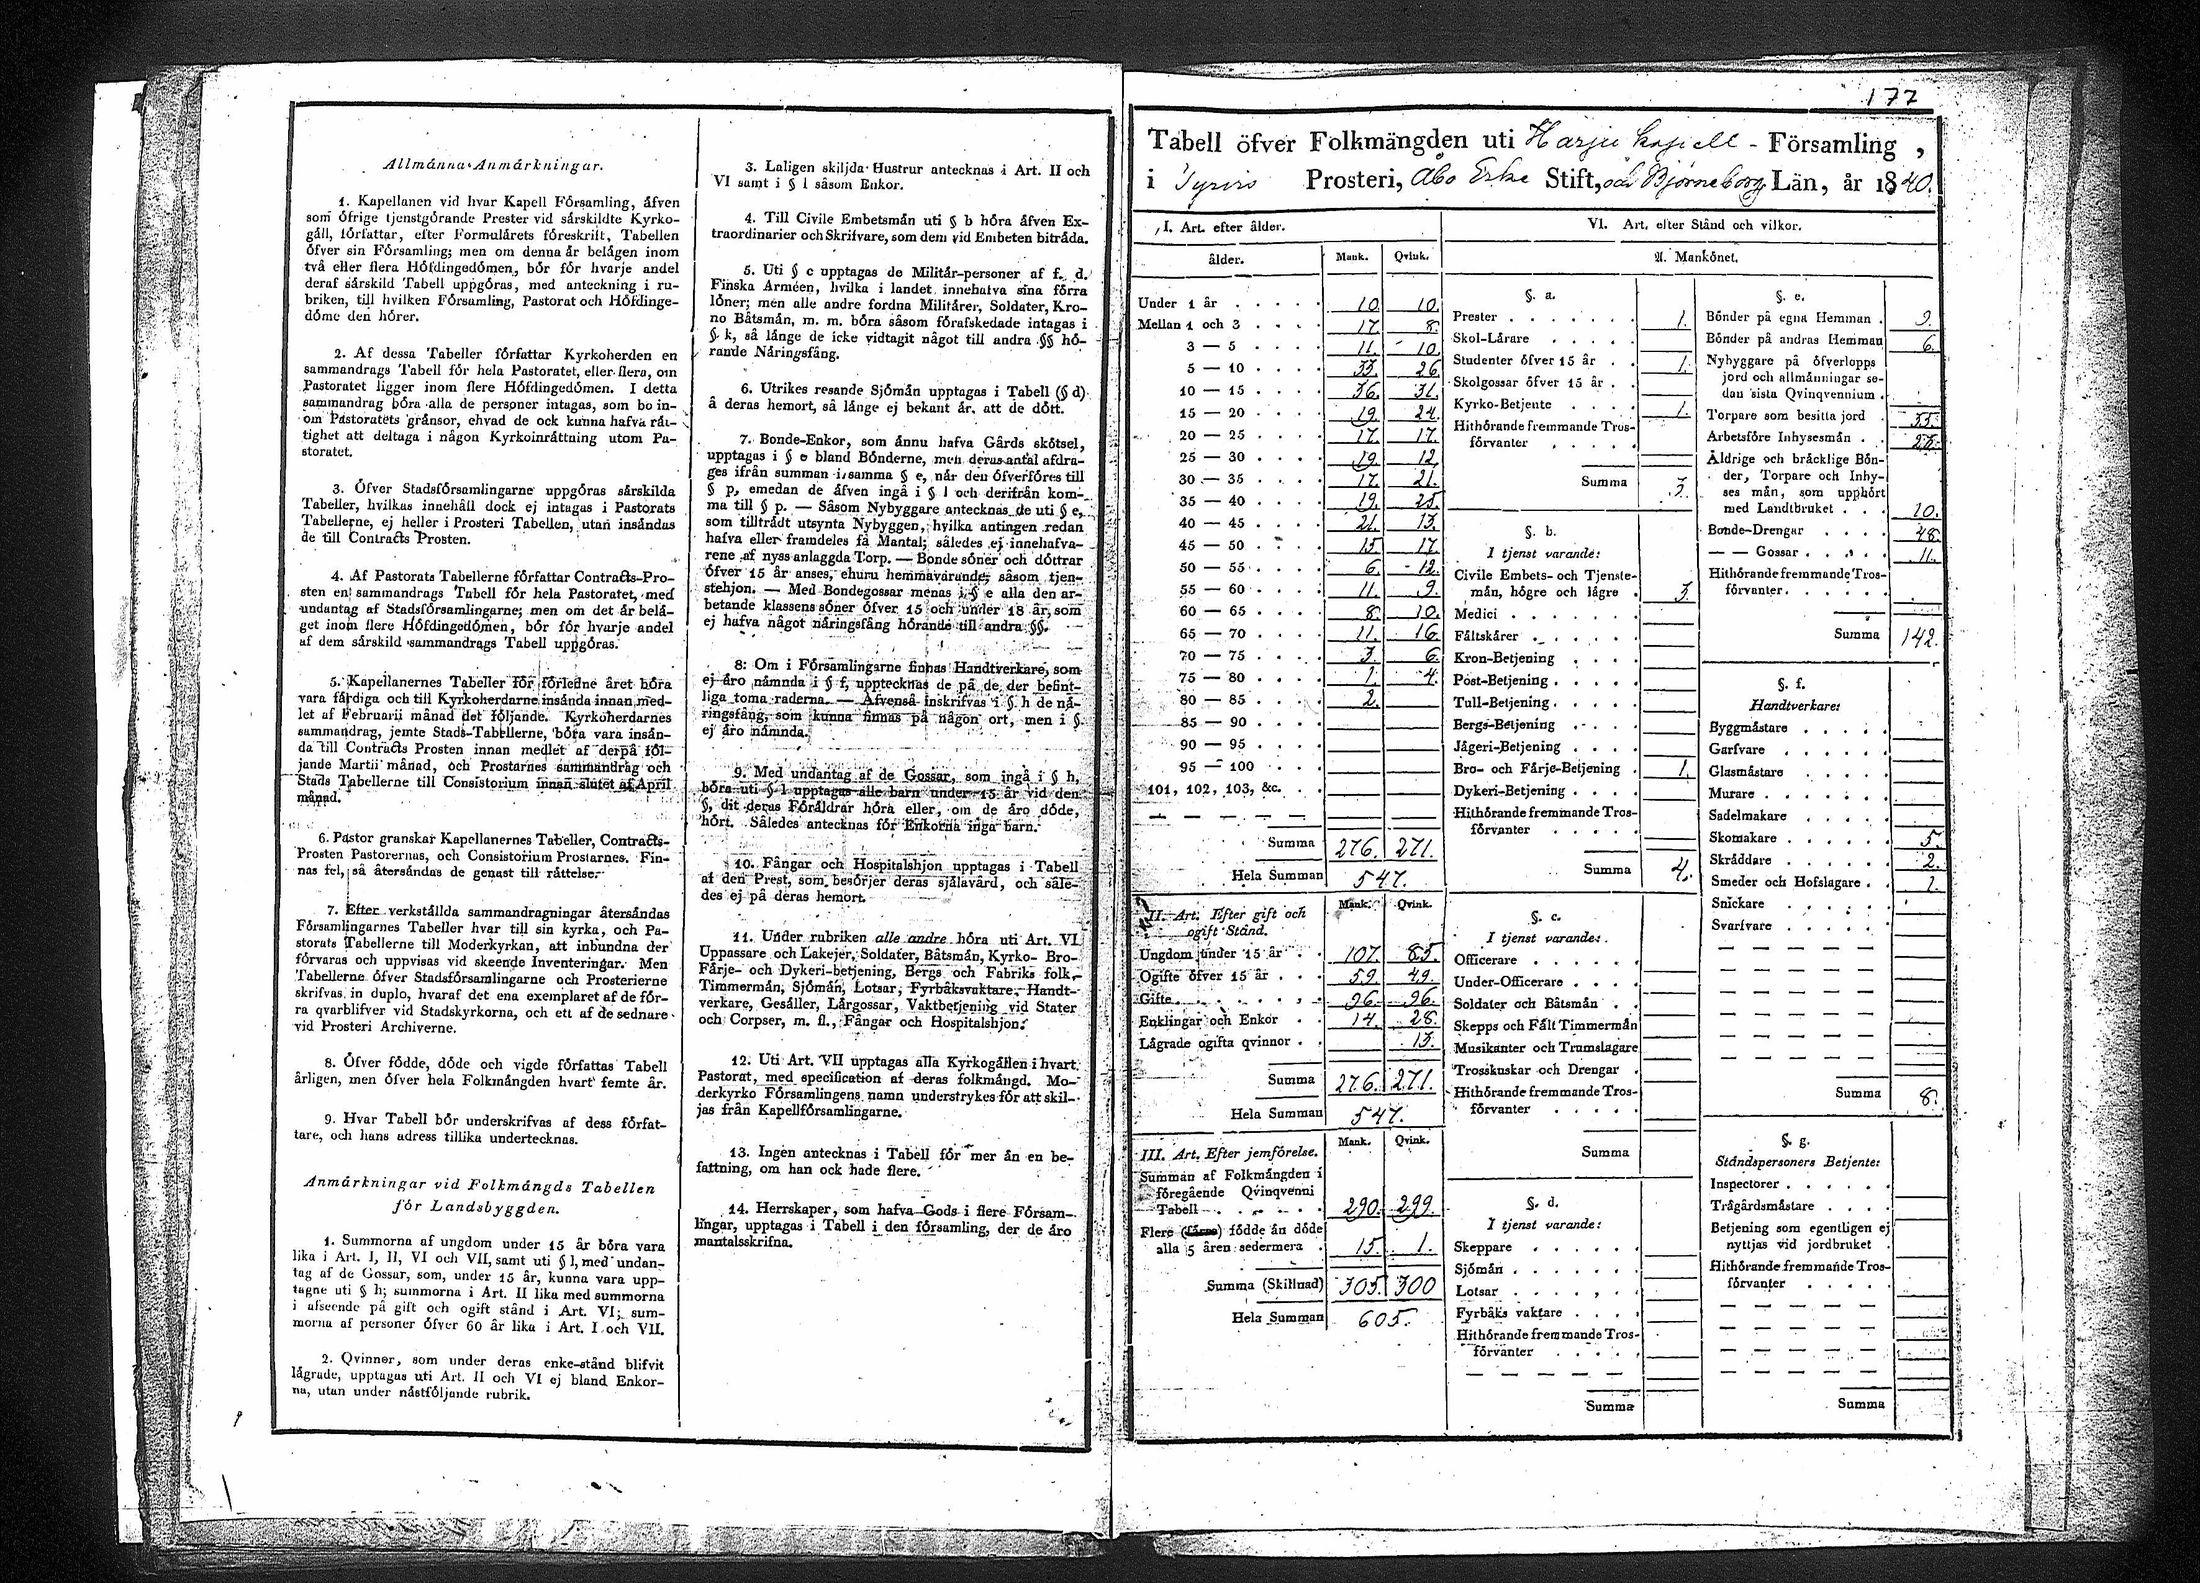 Allmánna Anmárkningar.
1. Kapellanen vid hvar Kapell Fórsamling, áfven
som ófrige tjenstgórande Prester vid sárskildte Kyrko-
gáll, fórfattar, efter Formulárets fóreskrift, Tabellen
ófver sin Fórsamling; men om denna år belágen inom
två eller flera Hófdingedómen, bór fór hvarje andel
deraf sárskild Tabell uppgóras, med anteckning i ru-
briken, till hvilken Fórsamling, Pastorat och Hófdinge-
dóme den hórer.
2. Af dessa Tabeller fórfattar Kyrkoherden en
sammandrags Tabell fór hela Pastoratet, eller flera, om
Pastoratet ligger inom flere Hófdingedómen. I detta
sammandrag bóra alla de personer intagas, som bo in-
om Pastoratets gránsor, ehvad de ock kunna hafva rát-
tighet att deltaga i någon Kyrkoinráttning utom Pa-
storatet.
3. Ófver Stadsfórsamlingarne uppgóras sárskilda
Tabeller, hvilkas innehåll dock ej intagas i Pastorats
Tabellerne, ej heller i Prosteri Tabellen, utan insándas
de till Contracts Prosten.
4. Af Pastorats Tabellerne fórfattar Contracts-Pro-
sten en sammandrags Tabell fór hela Pastoratet, med
undantag af Stadsfórsamlingarne; men om det år belá-
get inom flere Hófdingedómen, bór fór hvarje andel
af dem sárskild sammandrags Tabell uppgóras.
5. Kapellanernes Tabeller fór fórledne året bóra
vara fárdiga och till Kyrkoherdarne insánda innan med-
let af Februarii månad det fóljande. Kyrkoherdarnes
sammandrag, jemte Stads-Tabellerne, bóra vara insån-
da till Contracts Prosten innan medlet af derpå fól-
jande Martii månad, och Prostarnes sammandrag och
Stads Tabellerne till Consistorium innan slutet af April
månad.
6. Pastor granskar Kapellanernes Tabeller, Contracts-
Prosten Pastorernas, och Consistorium Prostarnes. Fin-
nas fel, så återsándas de genast till ráttelse.
7. Efter verkstállda sammandragningar återsándas
Fórsamlingarnes Tabeller hvar till sin kyrka, och Pa-
storats Tabellerne till Moderkyrkan, att inbundna der
fórvaras och uppvisas vid skeende Inventeringar. Men
Tabellerne ófver Stadsfórsamlingarne och Prosterierne
skrifvas in duplo, hvaraf det ena exemplaret af de fór-
ra qvarblifver vid Stadskyrkorna, och ett af de sednare
vid Prosteri Archiverne.
8. Ófver fódde, dóde och vigde fórfattas Tabell
årligen, men ófver hela Folkmángden hvart femte år.
9. Hvar Tabell bór underskrifvas af dess fórfat-
tare, och hans adress tillika undertecknas.
Anmárkningar vid Folkmángds Tabellen
fór Landsbyggden.
1. Summorna af ungdom under 15 år bóra vara
lika i Art. I, II, VI och VII, samt uti § l, med undan-
tag af de Gossar, som, under 15 år, kunna vara upp-
tagne uti § h; summorna i Art. II lika med summorna
i afseende på gift och ogift stånd i Art. VI; sum-
morna af personer ófver 60 år lika i Art. I och VII.
2. Qvinnor, som under deras enke-stånd blifvit
lágrade, upptagas uti Art. II och VI ej bland Enkor-
na, utan under nástfóljande rubrik.
3. Laligen skiljda Hustrur antecknas i Art. II och
VI samt i § l såsom Enkor.
4. Till Civile Embetsmán uti § b hóra áfven Ex-
traordinarier och Skrifvare, som dem vid Embeten bitráda.
5. Uti § c upptagas de Militár-personer af f. d.
Finska Arméen, hvilka i landet innehafva sina fórra
lóner; men alle andre fordna Militárer, Soldater, Kro-
no Båtsmán, m. m. bóra såsom fórafskedade intagas i
§ k, så lánge de icke vidtagit något till andra §§ hó-
rande Náringsfång.
6. Utrikes resande Sjómán upptagas i Tabell (§ d)
å deras hemort, så lánge ej bekant ár, att de dótt.
7. Bonde-Enkor, som ánnu hafva Gårds skótsel,
upptagas i § e bland Bónderne, men deras antal afdra-
ges ifrån summan i samma § e, nár den ófverfóres till
§ p, emedan de áfven ingå i § l och derifrån kom-
ma till § p. — Såsom Nybyggare antecknas de uti § e,
som tilltrádt utsynta Nybyggen, hvilka antingen redan
hafva eller framdeles få Mantal; således ej innehafva-
rene af nyss anlaggda Torp. — Bonde sóner och dóttrar
ófver 15 år anses, ehuru hemmavarande, såsom tjen-
stehjon. — Med Bondegossar menas i § e alla den ar-
betande klassens sóner ófver 15 och under 18 år, som
ej hafva något náringsfång hórande till andra §§.
8. Om i Fórsamlingarne finnas Handtverkare, som
ej áro námnda i § f, upptecknas de på de der befint-
liga toma raderna. — Áfvenså inskrifvas i § h de ná-
ringsfång, som kunna finnas på någon ort, men i §
ej áro námnda.
9. Med undantag af de Gossar, som ingå i § h,
bóra uti § l upptagas alle barn under 15 år vid den
§, dit deras Fóráldrar hóra eller, om de áro dóde,
hórt. Således antecknas fór Enkorna inga barn.
10. Fångar och Hospitalshjon upptagas i Tabell
af den Prest, som besórjer deras sjálavård, och såle-
des ej på deras hemort.
11. Under rubriken alle andre hóra uti Art. VI
Uppassare och Lakejer, Soldater, Båtsmán, Kyrko- Bro-
Fárje- och Dykeri-betjening, Bergs och Fabriks folk,
Timmermán, Sjómán, Lotsar, Fyrbåksvaktare, Handt-
verkare, Gesáller, Lárgossar, Vaktbetjening vid Stater
och Corpser, m. fl., Fångar och Hospitalshjon.
12. Uti Art. VII upptagas alla Kyrkogállen i hvart
Pastorat, med specification af deras folkmángd. Mo-
derkyrko Fórsamlingens namn understrykes fór att skil-
jas från Kapellfórsamlingarne.
13. Ingen antecknas i Tabell fór mer án en be-
fattning, om han ock hade flere.
14. Herrskaper, som hafva Gods i flere Fórsam-
lingar, upptagas i Tabell i den fórsamling, der de áro
mantalsskrifna.
177
Tabell öfver Folkmängden uti Harju kapell - Församling,
i Tyrvis Prosteri, Åbo Erke Stift, och Björneborg Län, år 1840.
I. Art. efter ålder.
ålder. Mank. Qvink.
Under 1 år 10. 10.
Mellan 1 och 3 17. 8.
3 — 5 11. 10.
5 — 10 33. 26.
10 — 15 36. 31.
15 — 20 19. 24.
20 — 25 17. 17.
25 — 30 19. 12.
30 — 35 17. 21.
35 — 40 19. 25.
40 — 45 21. 13.
45 — 50 15. 17.
50 — 55 6. 12.
55 — 60 11. 9.
60 — 65 8. 10.
65 — 70 11. 16.
70 — 75 3. 6.
75 — 80 1. 4.
80 — 85 2.
85 — 90
90 — 95
95 — 100
101, 102, 103, &c.
Summa 276. 271.
Hela Summan 547.
II. Art. Efter gift och ogift Stånd. Mank. Qvink.
Ungdom under 15 år 107. 85.
Ogifte öfver 15 år 59. 49.
Gifte 96. 96.
Enklingar och Enkor 14. 28.
Lågrade ogifta qvinnor 13.
Summa 276. 271.
Hela Summan 547.
III. Art. Efter jemfórelse. Mank. Qvink.
Summan af Folkmángden i
fóregående Qvinqvenni
Tabell 290. 299.
Flere (fárre) fódde án dóde
alla 5 åren sedermera 15. 1.
Summa (Skillnad) 305. 300
Hela Summan 605.
VI. Art. efter Stånd och vilkor.
A. Mankónet.
§. a.
Prester 1.
Skol-Lårare
Studenter öfver 15 år 1.
Skolgossar öfver 15 år
Kyrko-Betjente 1.
Hithórande fremmande Tros-
fórvanter
Summa 3.
§. b.
I tjenst varande:
Civile Embets- och Tjenste-
mån, hógre och lágre 3.
Medici
Fåltskårer
Kron-Betjening
Post-Betjening
Tull-Betjening
Bergs-Betjening
Jågeri-Betjening
Bro- och Fårje-Betjening 1.
Dykeri-Betjening
Hithórande fremmande Tros-
fórvanter
Summa 4.
§. c.
I tjenst varande:
Officerare
Under-Officerare
Soldater och Båtsmån
Skepps och Fålt Timmermån
Musikanter och Trumslagare
Trosskuskar och Drengar
Hithórande fremmande Tros-
fórvanter
Summa
§. d.
I tjenst varande:
Skeppare
Sjómån
Lotsar
Fyrbåks vaktare
Hithórande fremmande Tros-
fórvanter
Summa
§. e.
Bónder på egna Hemman 9.
Bónder på andras Hemman 6.
Nybyggare på ófverlopps
jord och allmånningar se-
dan sista Qvinqvennium
Torpare som besitta jord 33.
Arbetsfóre Inhysesmån 25.
Åldrige och bråcklige Bón-
der, Torpare och Inhy-
ses mån, som upphórt
med Landtbruket 10.
Bonde-Drengar 48.
— — Gossar 11.
Hithórande fremmande Tros-
fórvanter
Summa 142.
§. f.
Handtverkare:
Byggmåstare
Garfvare
Glasmåstare
Murare
Sadelmakare
Skomakare 5.
Skråddare 2.
Smeder och Hofslagare 1.
Snickare
Svarfvare
Summa 8.
§. g.
Ståndspersoners Betjente:
Inspectorer
Trågårdsmåstare
Betjening som egentligen ej
nyttjas vid jordbruket
Hithórande fremmande Tros-
fórvanter
Summa